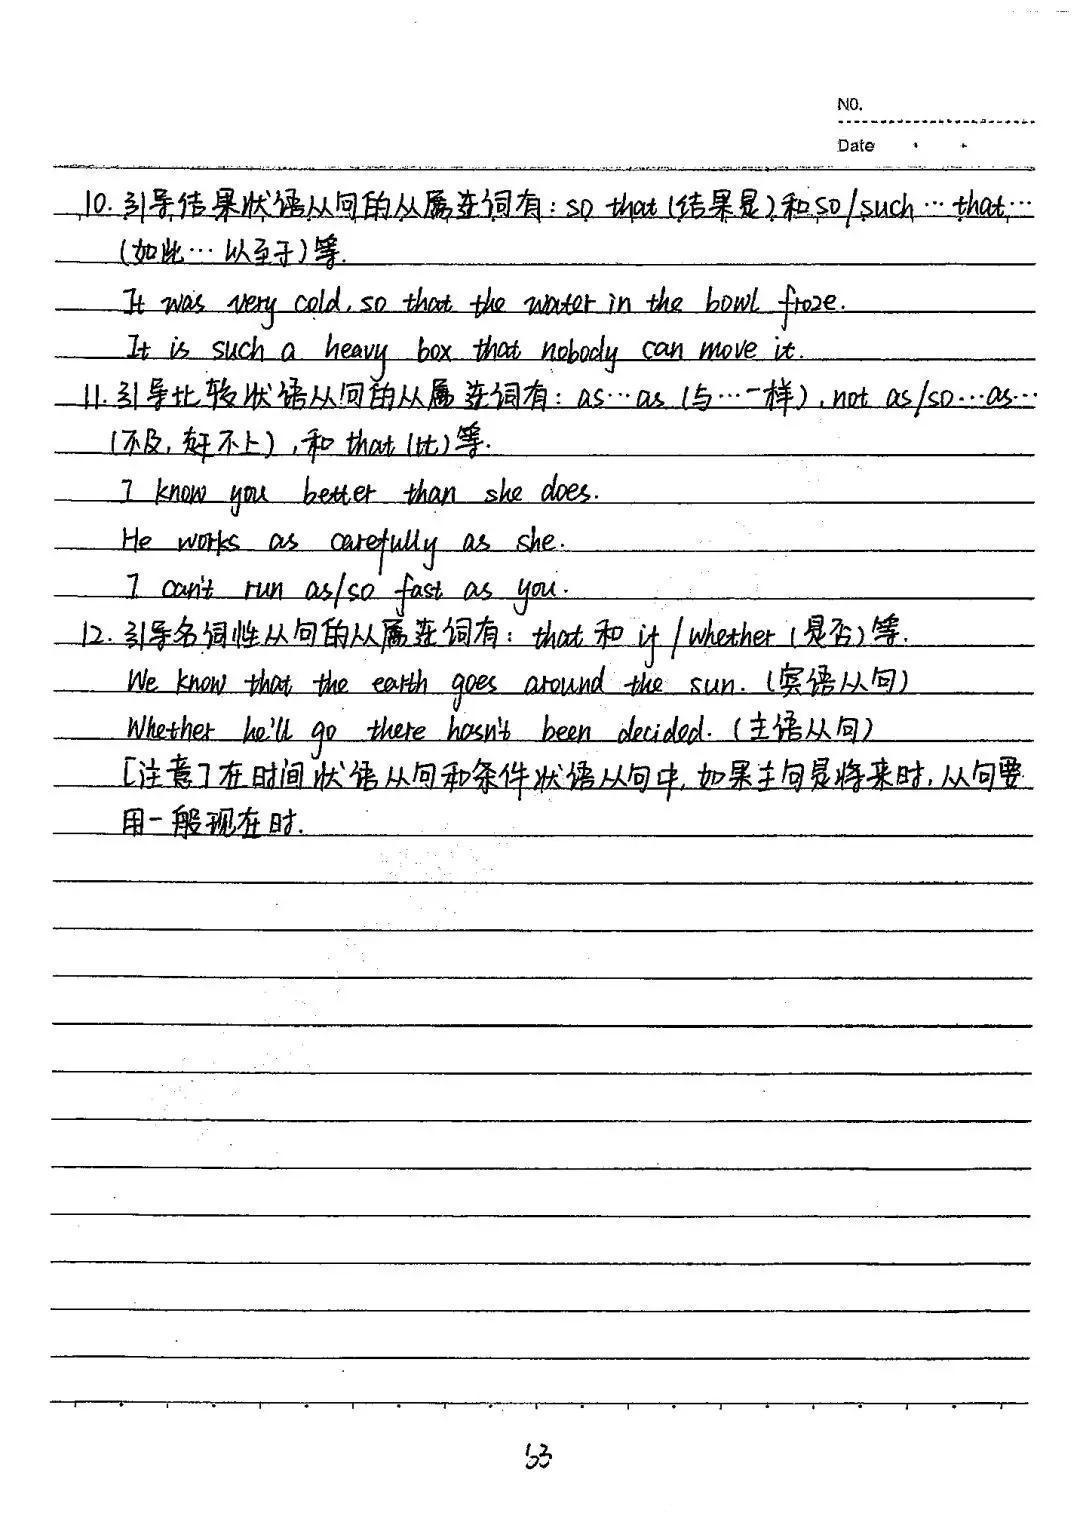 NO.
Date
10. 引导结果状语从句的从属连词有: so that (结果是) 和 so/such … that …
(如此… 以至于) 等.
It was very cold, so that the water in the bowl froze.
It is such a heavy box that nobody can move it.
11. 引导比较状语从句的从属连词有: as…as (与…一样), not as/so…as…
(不及, 赶不上), 和 that (比) 等.
I know you better than she does.
He works as carefully as she.
I can't run as/so fast as you.
12. 引导名词性从句的从属连词有: that 和 if / whether (是否) 等.
We know that the earth goes around the sun. (宾语从句)
Whether he'll go there hasn't been decided. (主语从句)
[注意] 在时间状语从句和条件状语从句中, 如果主句是将来时, 从句要
用一般现在时.